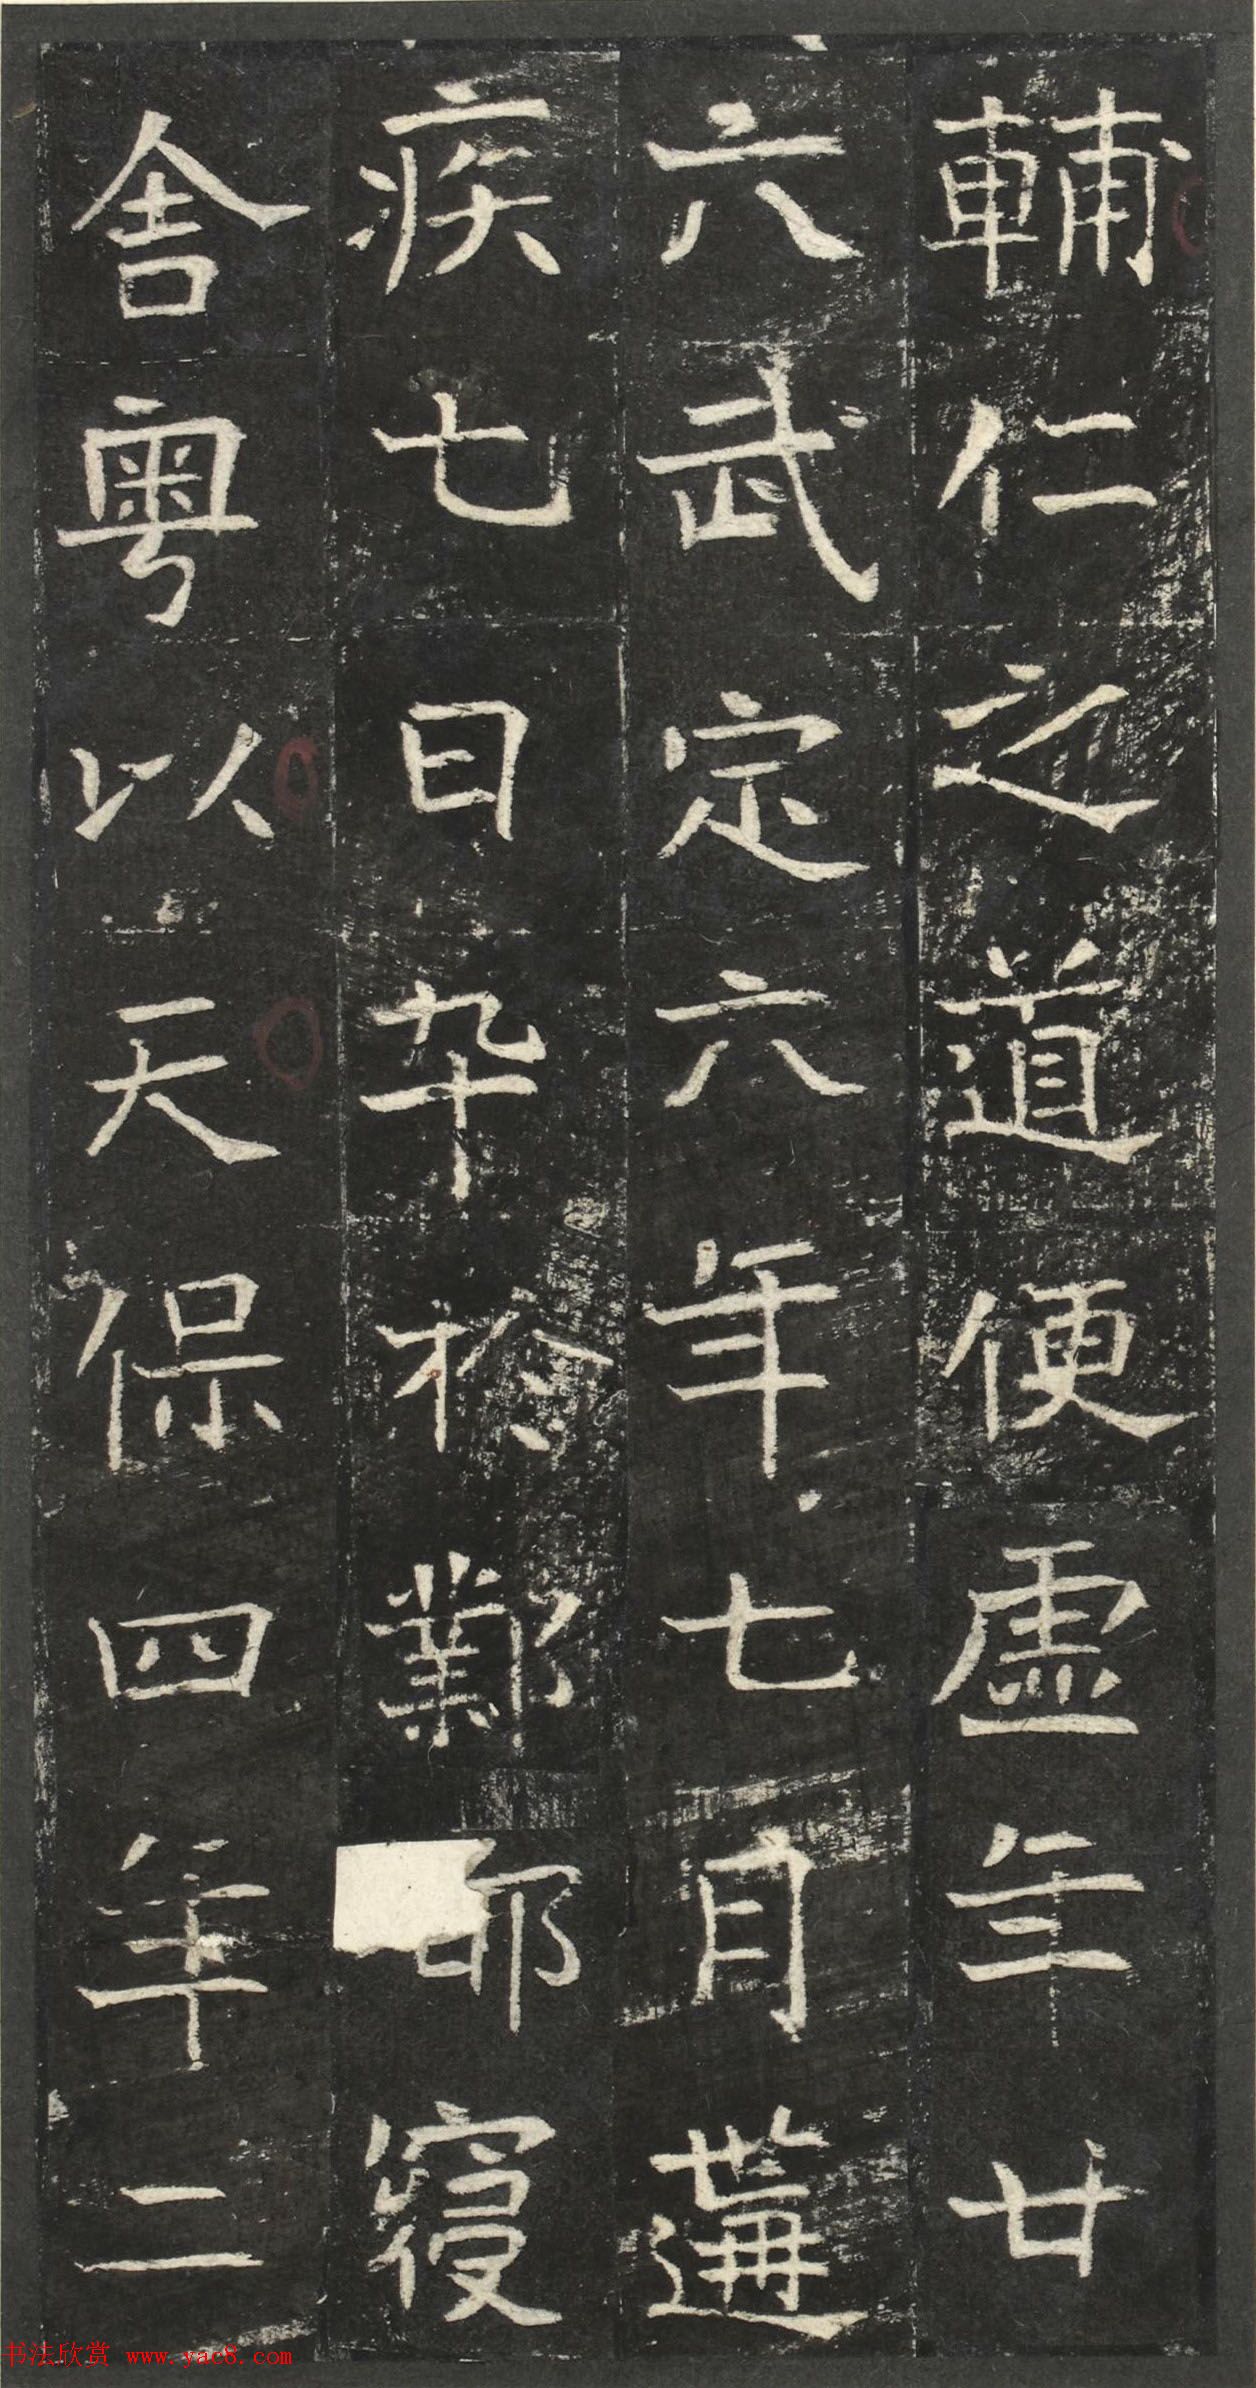 輔仁之道便虛年廿
六武定六年七月遘
疾七日卆於鄴都寢
舍粤以天保四年二
书法欣赏 www.yac8.com